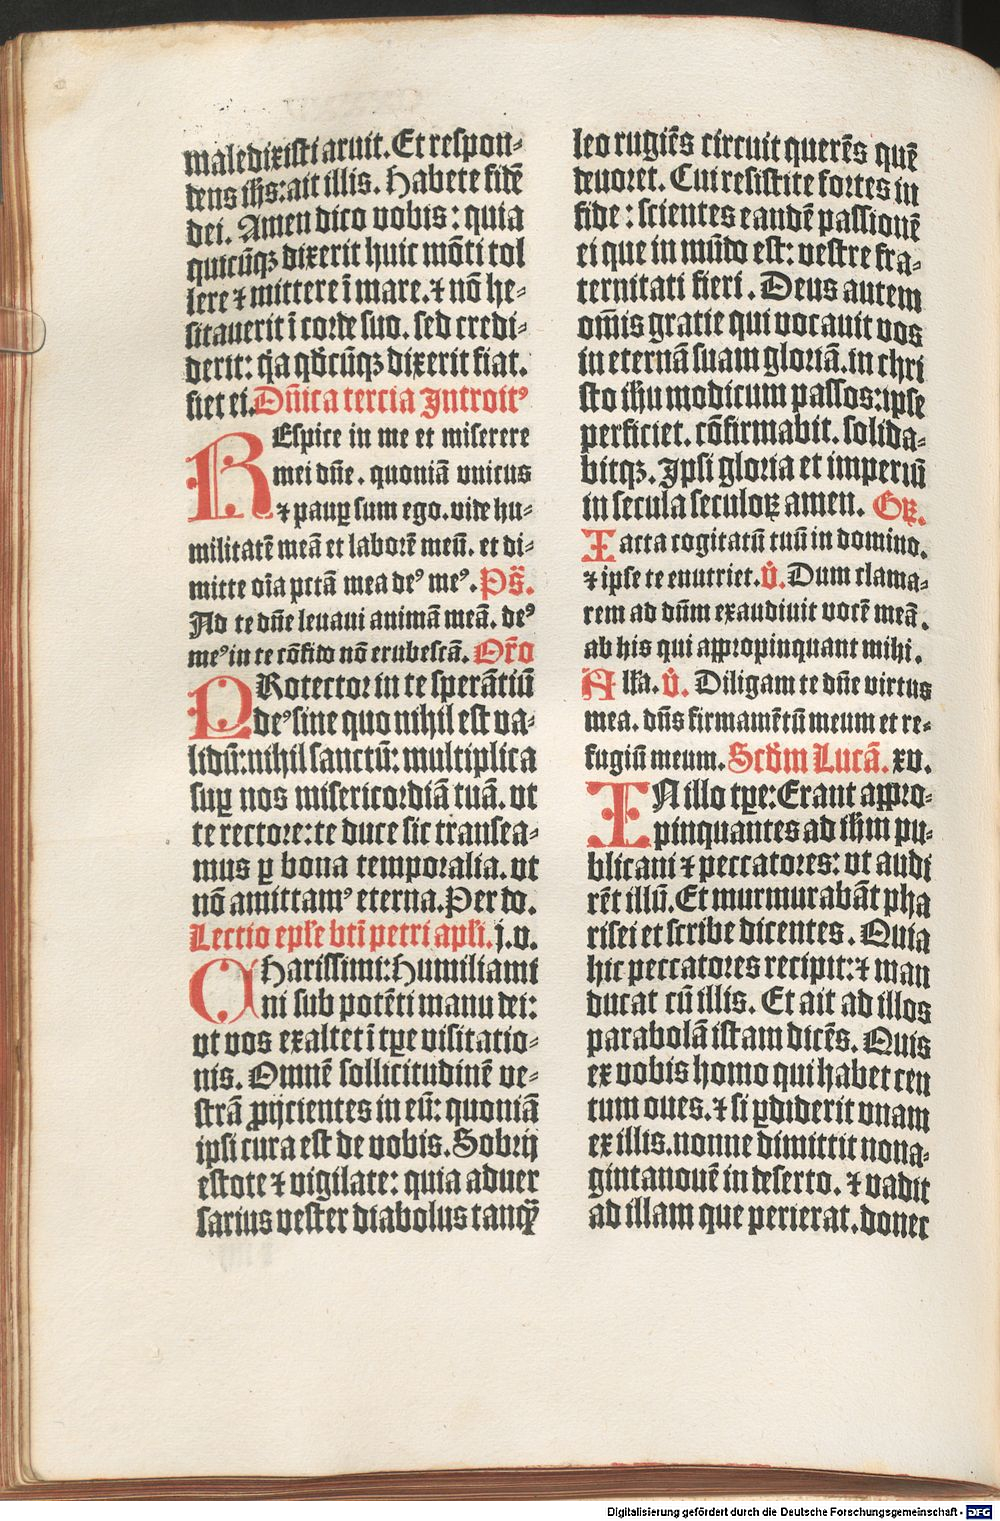 maledixisti aruit. Et respon⸗
dens ih̄s: ait illis. Habete fidē
dei. Amen dico vobis: quia
quicūqꝫ dixerit huic mōti tol
lere ⁊ mittere ī mare. ⁊ nō he⸗
sitauerit ī corde suo. sed credi⸗
derit: q̇a qd̄cūqꝫ dixerit fiat.
fiet ei. Dn̄ica tercia Introitꝰ
REspice in me et miserere
mei dn̄e. quoniā vnicus
⁊ pauꝑ sum ego. vide hu⸗
militatē meā et laborē meū. et di⸗
mitte oīa pctā mea deꝰ meꝰ. Ps̄.
Ad te dn̄e leuaui animā meā. deꝰ
meꝰ in te cōfido nō erubescā. Or̄o
PRotector in te sperātiū
deꝰ sine quo nihil est va⸗
lidū: nihil sanctū: multiplica
suꝑ nos misericordiā tuā. vt
te rectore: te duce sic transea⸗
mus ꝑ bona temporalia. vt
nō amittamꝰ eterna. Per do.
Lectio ep̄le bt̄i petri apl̄i. j. v.
CHarissimi: Humiliami
ni sub potēti manu dei:
vt vos exaltet ī tꝑe visitatio⸗
nis. Omnē sollicitudinē ve⸗
strā ꝓijcientes in eū: quoniā
ipsi cura est de vobis. Sobrij
estote ⁊ vigilate: quia aduer
sarius vester diabolus tanqȝ̄
leo rugiēs circuit querēs quē
deuoret. Cui resistite fortes in
fide: scientes eandē passionē
ei que in mūdo est: vestre fra⸗
ternitati fieri. Deus autem
om̄is gratie qui vocauit vos
in eternā suam gloriā. in chri
sto ih̄u modicum passos: ipse
perficiet. cōfirmabit. solida⸗
bitqꝫ. Ipsi gloria et imperiū
in secula seculoꝝ amen. Gꝝ.
Iacta cogitatū tuū in domino.
⁊ ipse te enutriet. V̇. Dum clama⸗
rem ad dūm exaudiuit vocē meā.
ab his qui appropinquant mihi.
All̄a. V̇. Diligam te dn̄e virtus
mea. dn̄s firmamētū meum et re⸗
fugiū meum. Scd̄m Lucā. xv.
IN illo tꝑe: Erant appro⸗
pinquantes ad ih̄m pu⸗
blicani ⁊ peccatores: vt audi
rēt illū. Et murmurabāt pha
risei et scribe dicentes. Quia
hic peccatores recipit: ⁊ man
ducat cū illis. Et ait ad illos
parabolā istam dicēs. Quis
ex vobis homo qui habet cen
tum oues. ⁊ si ꝑdiderit vnam
ex illis. nonne dimittit nona⸗
gintanouē in deserto. ⁊ vadit
ad illam que perierat. donec
Digitalisierung gefördert durch die Deutsche Forschungsgemeinschaft - DFG